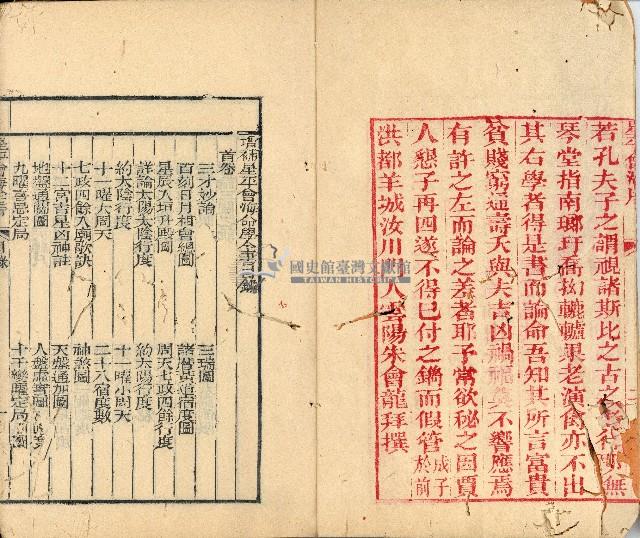 星平會海序
若孔夫子之謂視諸斯比之古文無
琴堂指南瑯玕喬拗轆轤果老演禽亦不出
其右學者得是書而論命吾知其所言富貴
貧賤窮通壽夭與夫吉凶禍福不響應焉
有許之左而論之差者耶予常欲秘之因賈
人懇子再四遂不得已付之鐫而假管成子於前
洪都羊城汝川門人雲陽朱會龍拜撰
增補星平會海命學全書目錄
首卷
三才妙論 三瑞圖
百刻日月相會總圖 諸曆黃道宿度
星辰入垣升殿圖 周天七政四餘行度
詳論太陽太陰行度 約太陽行度
約太陰行度 十一曜小周天
十一曜大周天 二十八宿度數
七政四餘入廟歌訣 神煞圖
十二宮吉星凶神註 天盤通加圖
地盤通關圖 人盤圖
九曜喜忌定局 十干變曜定局圖
星平會海全書 目錄
國史館臺灣文獻館
TAIWAN HISTORICA